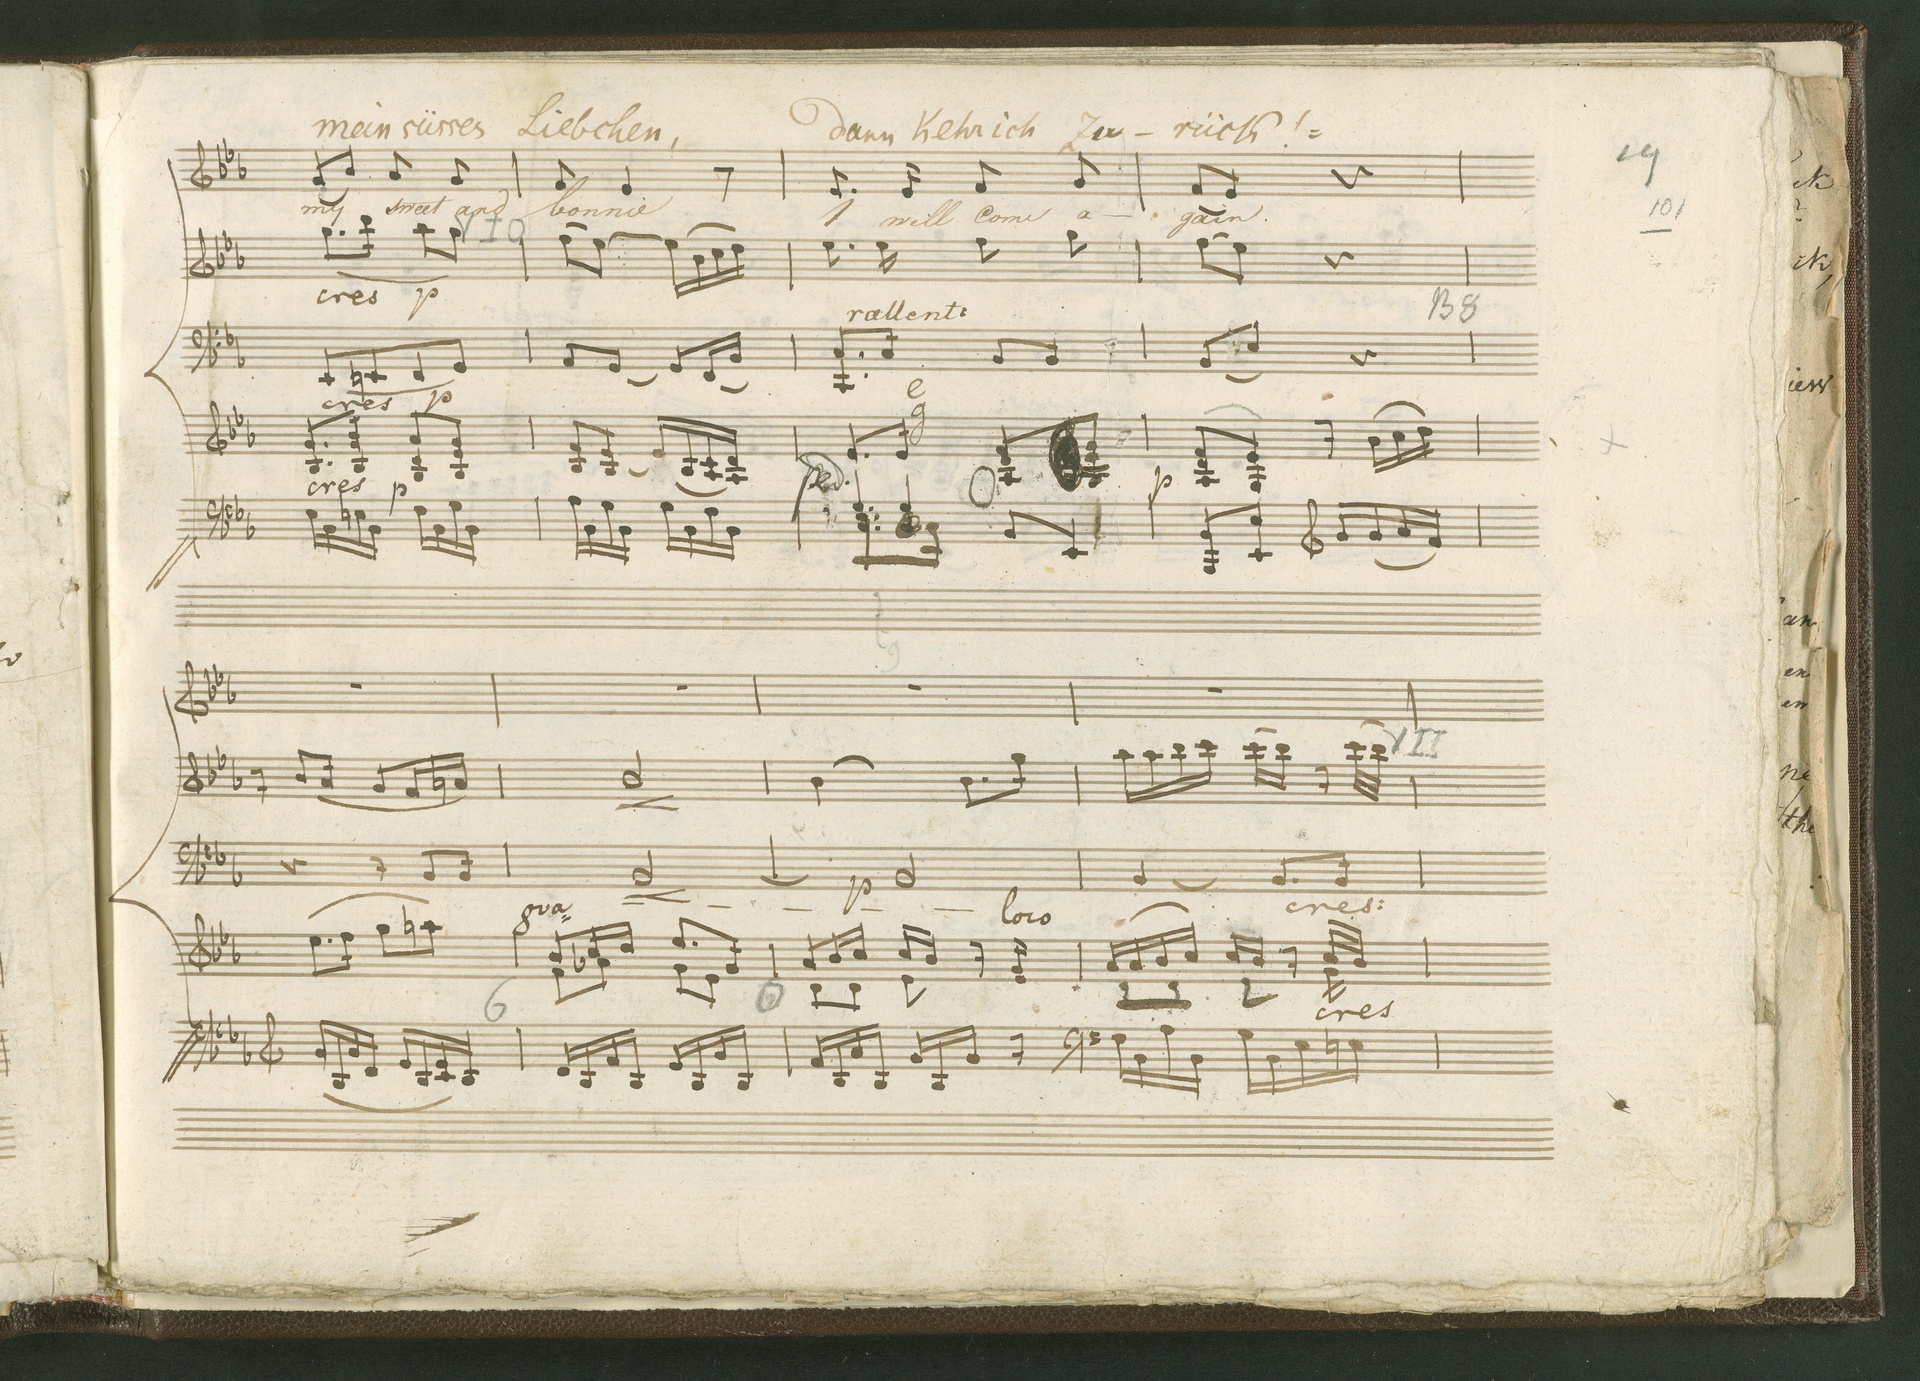 mein süsses Liebchen, Dann Kehr ich Zu - rück!=
19
my sweet and bonnie I will come a - gain.
101
VI0
cres p
rallent:
B8
cres p
e
g
cres p
ped.
p
VII
p
8va= loco
cres:
6 6
cres